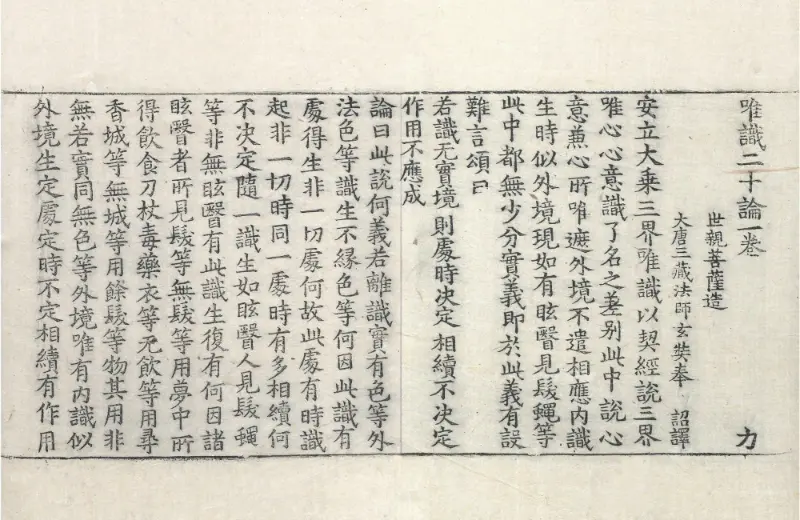 唯識二十論一卷 力
世親菩薩造
大唐三藏法師玄奘奉 詔譯
安立大乘三界唯識以契經說三界
唯心心意識了名之差别此中說心
意兼心所唯遮外境不遣相應内識
生時似外境現如有眩瞖見髮蠅等
此中都無少分實義即於此義有設
難言頌曰
若識无實境 則處時决定 相續不决定
作用不應成
論曰此說何義若離識實有色等外
法色等識生不緣色等何因此識有
處得生非一切處何故此處有時識
起非一切時同一處時有多相續何
不决定隨一識生如眩瞖人見髮蠅
等非無眩瞖有此識生復有何因諸
眩瞖者所見髮等無髮等用夢中所
得飲食刀杖毒藥衣等无飲等用尋
香城等無城等用餘髮等物其用非
無若實同無色等外境唯有内識似
外境生定處定時不定相續有作用